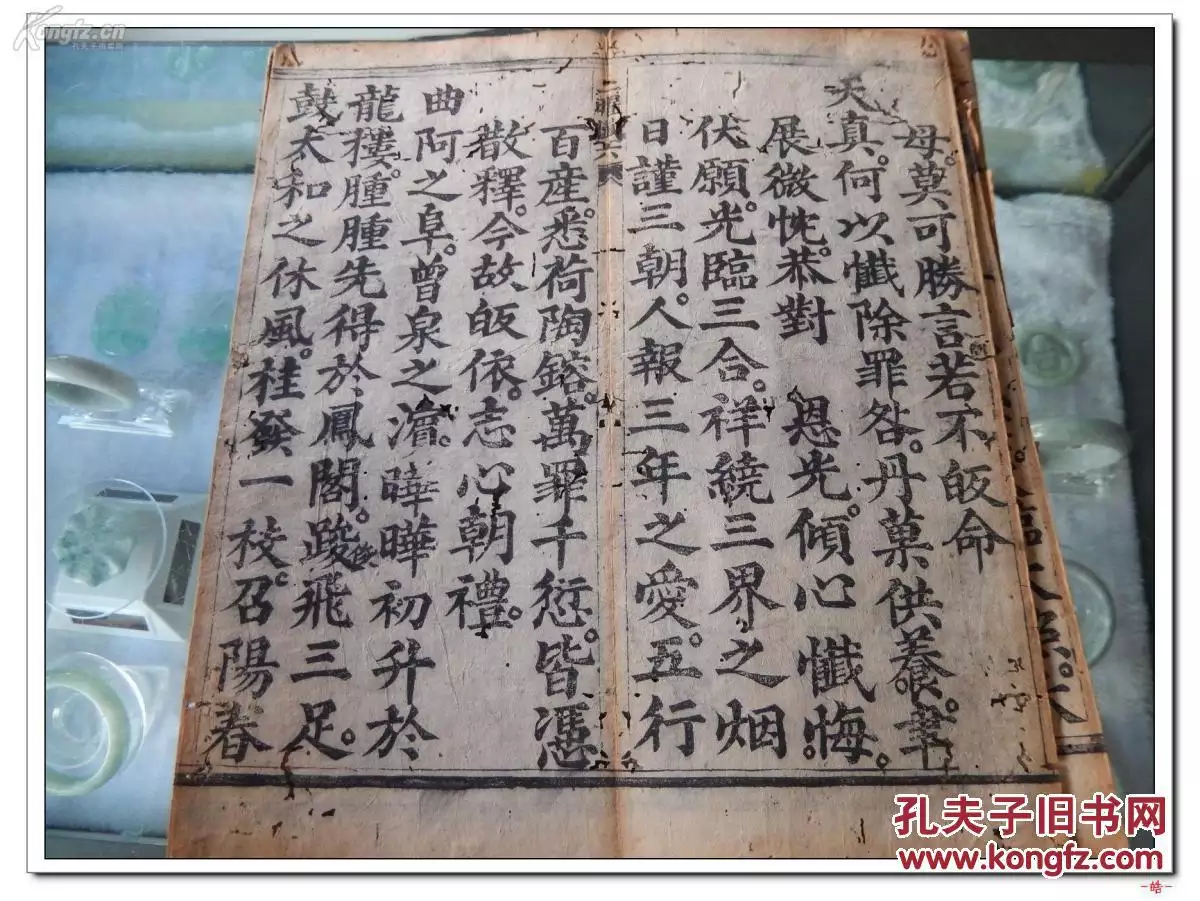 母。莫可勝言若不皈命
天真。何以懺除罪咎。丹菓供養。葷
展微忱。恭對 恩光。傾心懺悔。
伏願光臨三合。祥繞三界之烟
日謹三朝。人報三年之愛。五行
百産。悉荷陶鎔。萬罪千愆。皆憑
散釋。今故皈依。志心朝禮。
曲阿之阜。曾泉之濱。曄曄初升於
龍穆。腫腫先得於鳳閣。踆飛三足。
鼓太和之休風。桂發一枝。召陽春
Kongfz.cn
孔夫子旧书网
孔夫子旧书网
www.kongfz.com
-皓-